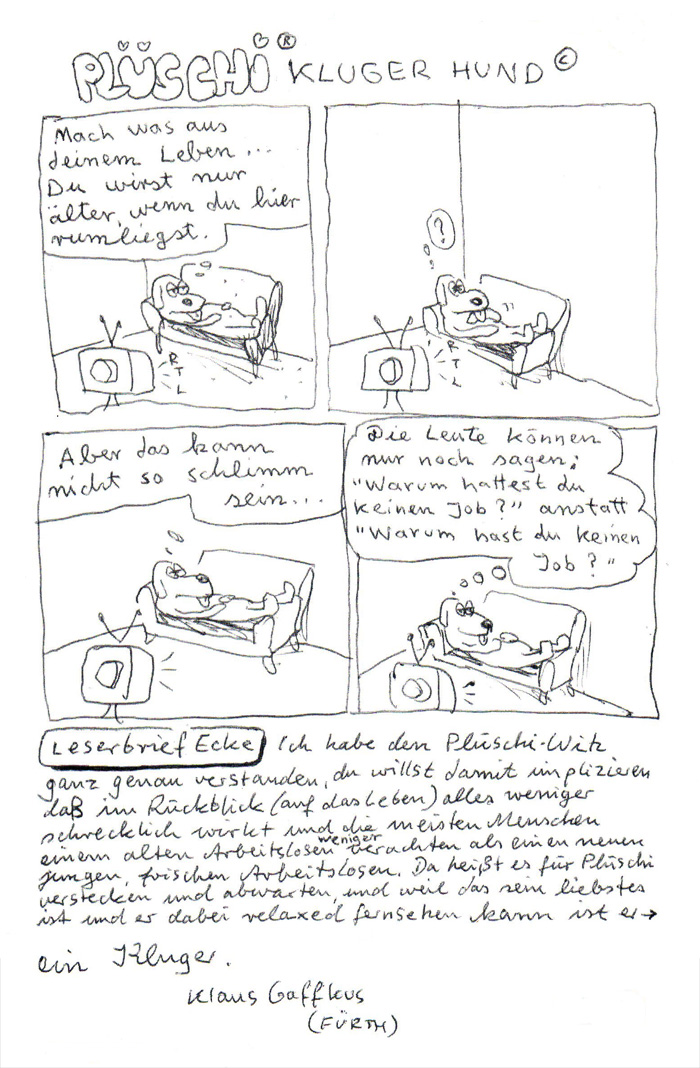 PLÜSCHi ® KLUGER HUND ©
Mach was aus
deinem Leben...
Du wirst nur
älter, wenn du hier
rumliegst.
?
RTL
RTL
Aber das kann
nicht so schlimm
sein...
Die Leute können
nur noch sagen:
"Warum hattest du
keinen Job?" anstatt
"Warum hast du keinen
Job?"
Leserbrief Ecke Ich habe den Plüschi-Witz
ganz genau verstanden, du willst damit implizieren
daß im Rückblick (auf das Leben) alles weniger
schrecklich wirkt und die meisten Menschen
einem alten Arbeitslosen weniger verachten als einen neuen
jungen, frischen Arbeitslosen. Da heißt es für Plüschi
verstecken und abwarten, und weil das sein liebstes
ist und er dabei relaxed fernsehen kann ist er →
ein Kluger.
Klaus Gaffkus
(FÜRTH)